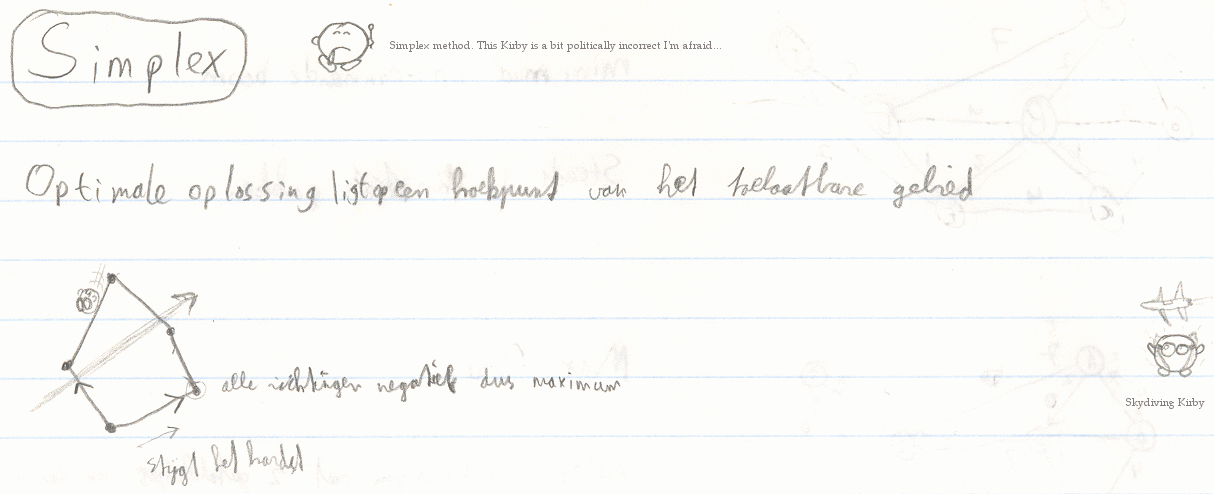 Simplex
Simplex method. This Kirby is a bit politically incorrect I'm afraid...
Optimale oplossing ligt op een hoekpunt van het toelaatbare gebied
alle richtingen negatief dus maximum
Skydiving Kirby
stijgt het hardst